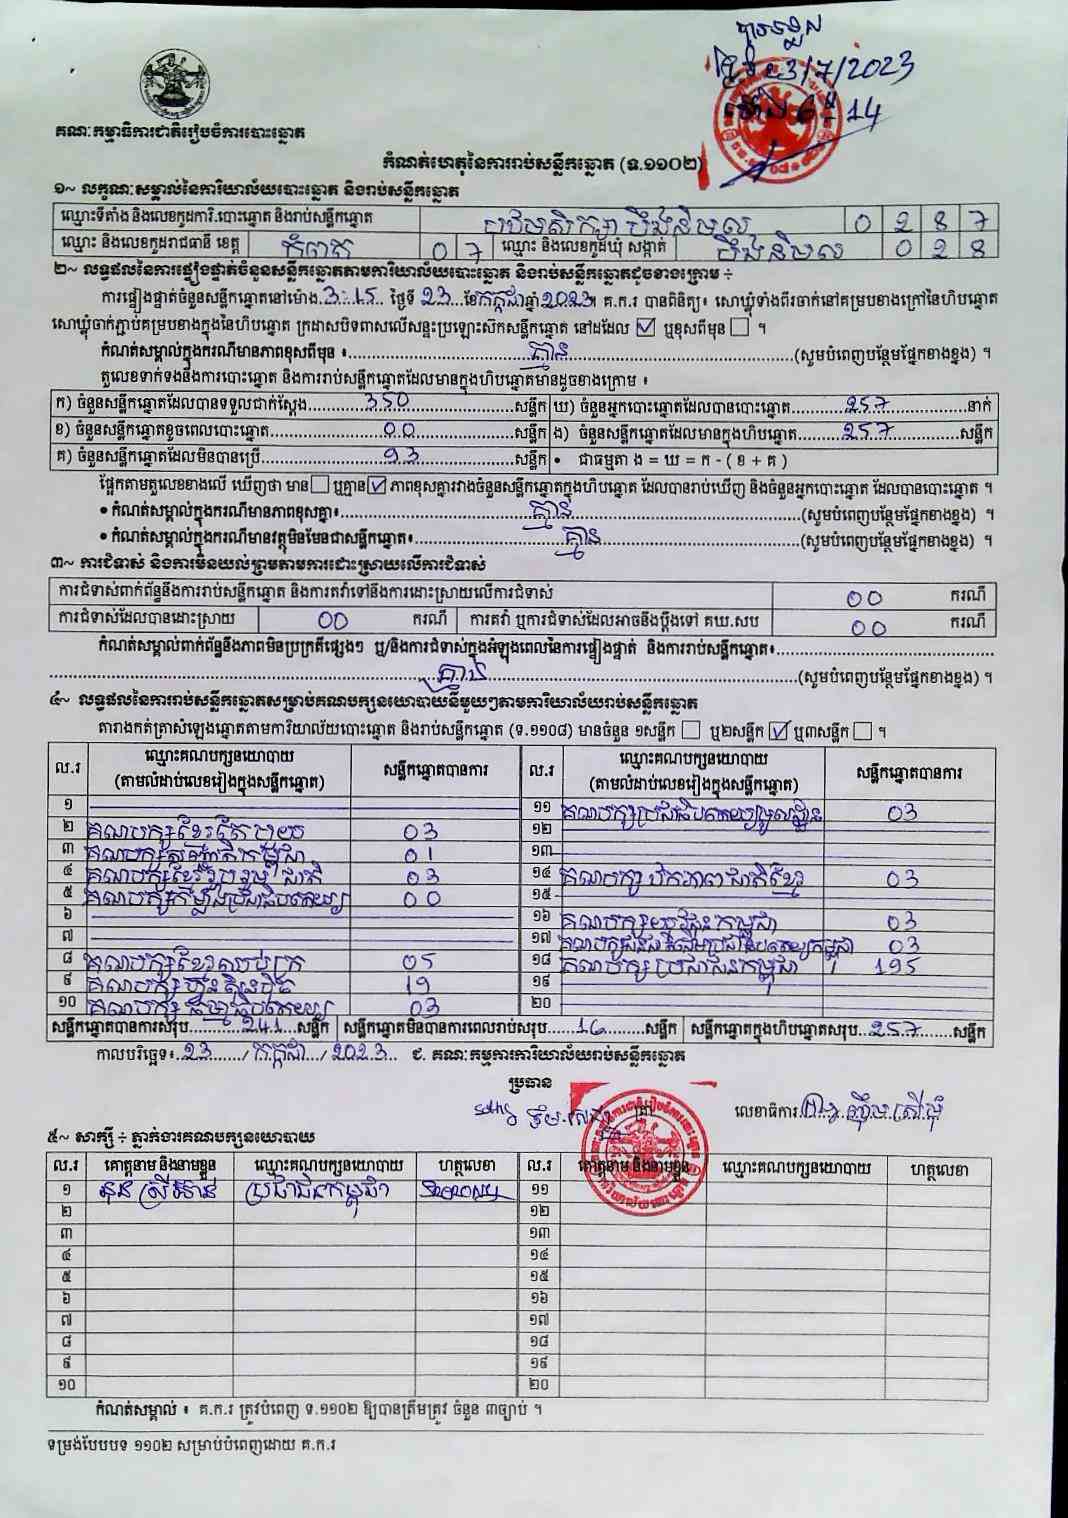 ថ្ងៃទី 23/7/2023
ម៉ោង 6 14
គណៈកម្មាធិការជាតិរៀបចំការបោះឆ្នោត
កំណត់ហេតុនៃការរាប់សន្លឹកឆ្នោត (ទ.១១០២)
១~ លក្ខណៈសម្គាល់នៃការិយាល័យបោះឆ្នោត និងរាប់សន្លឹកឆ្នោត
ឈ្មោះទីតាំង និងលេខកូដការិ.បោះឆ្នោត និងរាប់សន្លឹកឆ្នោត បឋមសិក្សា បឹងនិមល 0 2 8 7
ឈ្មោះ និងលេខកូដរាជធានី ខេត្ត កំពត 0 7 ឈ្មោះ និងលេខកូដឃុំ សង្កាត់ បឹងនិមល 0 2 8
២~ លទ្ធផលនៃការផ្ទៀងផ្ទាត់ចំនួនសន្លឹកឆ្នោតតាមការិយាល័យបោះឆ្នោត និងរាប់សន្លឹកឆ្នោតដូចខាងក្រោម ÷
ការផ្ទៀងផ្ទាត់ចំនួនសន្លឹកឆ្នោតនៅម៉ោង 3:15 ថ្ងៃទី 23 ខែ កក្កដា ឆ្នាំ 2023។ គ.ក.រ បានពិនិត្យ៖ សោឃ្លុំទាំងពីរចាក់នៅគម្របខាងក្រៅនៃហិបឆ្នោត
សោឃ្លុំចាក់ភ្ជាប់គម្របខាងក្នុងនៃហិបឆ្នោត ក្រដាសបិទពាសលើសន្ទះប្រឡោះស៊កសន្លឹកឆ្នោត នៅដដែល ☑ ឬខុសពីមុន ☐ ។
កំណត់សម្គាល់ក្នុងករណីមានភាពខុសពីមុន ៖ គ្មាន (សូមបំពេញបន្ថែមផ្នែកខាងខ្នង) ។
តួលេខទាក់ទងនឹងការបោះឆ្នោត និងការរាប់សន្លឹកឆ្នោតដែលមានក្នុងហិបឆ្នោតមានដូចខាងក្រោម ៖
ក) ចំនួនសន្លឹកឆ្នោតដែលបានទទួលជាក់ស្តែង 350 សន្លឹក ឃ) ចំនួនអ្នកបោះឆ្នោតដែលបានបោះឆ្នោត 257 នាក់
ខ) ចំនួនសន្លឹកឆ្នោតខូចពេលបោះឆ្នោត 00 សន្លឹក ង) ចំនួនសន្លឹកឆ្នោតដែលមានក្នុងហិបឆ្នោត 257 សន្លឹក
គ) ចំនួនសន្លឹកឆ្នោតដែលមិនបានប្រើ 93 សន្លឹក • ជាធម្មតា ង = ឃ = ក - ( ខ + គ )
ផ្អែកតាមតួលេខខាងលើ ឃើញថា មាន ☐ ឬគ្មាន ☑ ភាពខុសគ្នារវាងចំនួនសន្លឹកឆ្នោតក្នុងហិបឆ្នោត ដែលបានរាប់ឃើញ និងចំនួនអ្នកបោះឆ្នោត ដែលបានបោះឆ្នោត ។
• កំណត់សម្គាល់ក្នុងករណីមានភាពខុសគ្នា៖ គ្មាន (សូមបំពេញបន្ថែមផ្នែកខាងខ្នង) ។
• កំណត់សម្គាល់ក្នុងករណីមានវត្ថុមិនមែនជាសន្លឹកឆ្នោត៖ គ្មាន (សូមបំពេញបន្ថែមផ្នែកខាងខ្នង) ។
៣~ ការជំទាស់ និងការមិនយល់ព្រមតាមការដោះស្រាយលើការជំទាស់
ការជំទាស់ពាក់ព័ន្ធនឹងការរាប់សន្លឹកឆ្នោត និងការតវ៉ាទៅនឹងការដោះស្រាយលើការជំទាស់ 00 ករណី
ការជំទាស់ដែលបានដោះស្រាយ 00 ករណី ការតវ៉ា ឬការជំទាស់ដែលអាចនឹងប្តឹងទៅ គឃ.សប 00 ករណី
កំណត់សម្គាល់ពាក់ព័ន្ធនឹងភាពមិនប្រក្រតីផ្សេងៗ ឬ/និងការជំទាស់ក្នុងអំឡុងពេលនៃការផ្ទៀងផ្ទាត់ និងការរាប់សន្លឹកឆ្នោត៖
គ្មាន (សូមបំពេញបន្ថែមផ្នែកខាងខ្នង) ។
៤~ លទ្ធផលនៃការរាប់សន្លឹកឆ្នោតសម្រាប់គណបក្សនយោបាយនីមួយៗតាមការិយាល័យរាប់សន្លឹកឆ្នោត
តារាងកត់ត្រាសំឡេងឆ្នោតតាមការិយាល័យបោះឆ្នោត និងរាប់សន្លឹកឆ្នោត (ទ.១១០៨) មានចំនួន ១សន្លឹក ☐ ឬ២សន្លឹក ☑ ឬ៣សន្លឹក ☐ ។
ល.រ ឈ្មោះគណបក្សនយោបាយ (តាមលំដាប់លេខរៀងក្នុងសន្លឹកឆ្នោត) សន្លឹកឆ្នោតបានការ ល.រ ឈ្មោះគណបក្សនយោបាយ (តាមលំដាប់លេខរៀងក្នុងសន្លឹកឆ្នោត) សន្លឹកឆ្នោតបានការ
១ ១១ គណបក្សប្រជាធិបតេយ្យមូលដ្ឋាន 03
២ គណបក្សខ្មែរតែមួយ 03 ១២
៣ គណបក្សសញ្ជាតិកម្ពុជា 01 ១៣
៤ គណបក្សខ្មែររួបរួមជាតិ 03 ១៤ គណបក្ស ឯកភាពជាតិខ្មែរ 03
៥ គណបក្សកម្លាំងប្រជាធិបតេយ្យ 00 ១៥
៦ ១៦ គណបក្សយុវជនកម្ពុជា 03
៧ ១៧ គណបក្សជនជាតិដើមប្រជាធិបតេយ្យកម្ពុជា 03
៨ គណបក្សខ្មែរឈប់ក្រ 05 ១៨ គណបក្សប្រជាជនកម្ពុជា 195
៩ គណបក្សហ្វ៊ុនស៊ិនប៉ិច 19 ១៩
១០ គណបក្សធម្មាធិបតេយ្យ 03 ២០
សន្លឹកឆ្នោតបានការសរុប 241 សន្លឹក សន្លឹកឆ្នោតមិនបានការពេលរាប់សរុប 16 សន្លឹក សន្លឹកឆ្នោតក្នុងហិបឆ្នោតសរុប 257 សន្លឹក
កាលបរិច្ឆេទ៖ 23 / កក្កដា / 2023 ជ. គណៈកម្មការការិយាល័យរាប់សន្លឹកឆ្នោត
ប្រធាន
លេខាធិការ
៥~ សាក្សី ÷ ភ្នាក់ងារគណបក្សនយោបាយ
ល.រ គោត្តនាម និងនាមខ្លួន ឈ្មោះគណបក្សនយោបាយ ហត្ថលេខា ល.រ គោត្តនាម និងនាមខ្លួន ឈ្មោះគណបក្សនយោបាយ ហត្ថលេខា
១ ប្រជាជនកម្ពុជា ១១
២ ១២
៣ ១៣
៤ ១៤
៥ ១៥
៦ ១៦
៧ ១៧
៨ ១៨
៩ ១៩
១០ ២០
កំណត់សម្គាល់ ៖ គ.ក.រ ត្រូវបំពេញ ទ.១១០២ ឱ្យបានត្រឹមត្រូវ ចំនួន ៣ច្បាប់ ។
ទម្រង់បែបបទ ១១០២ សម្រាប់បំពេញដោយ គ.ក.រ